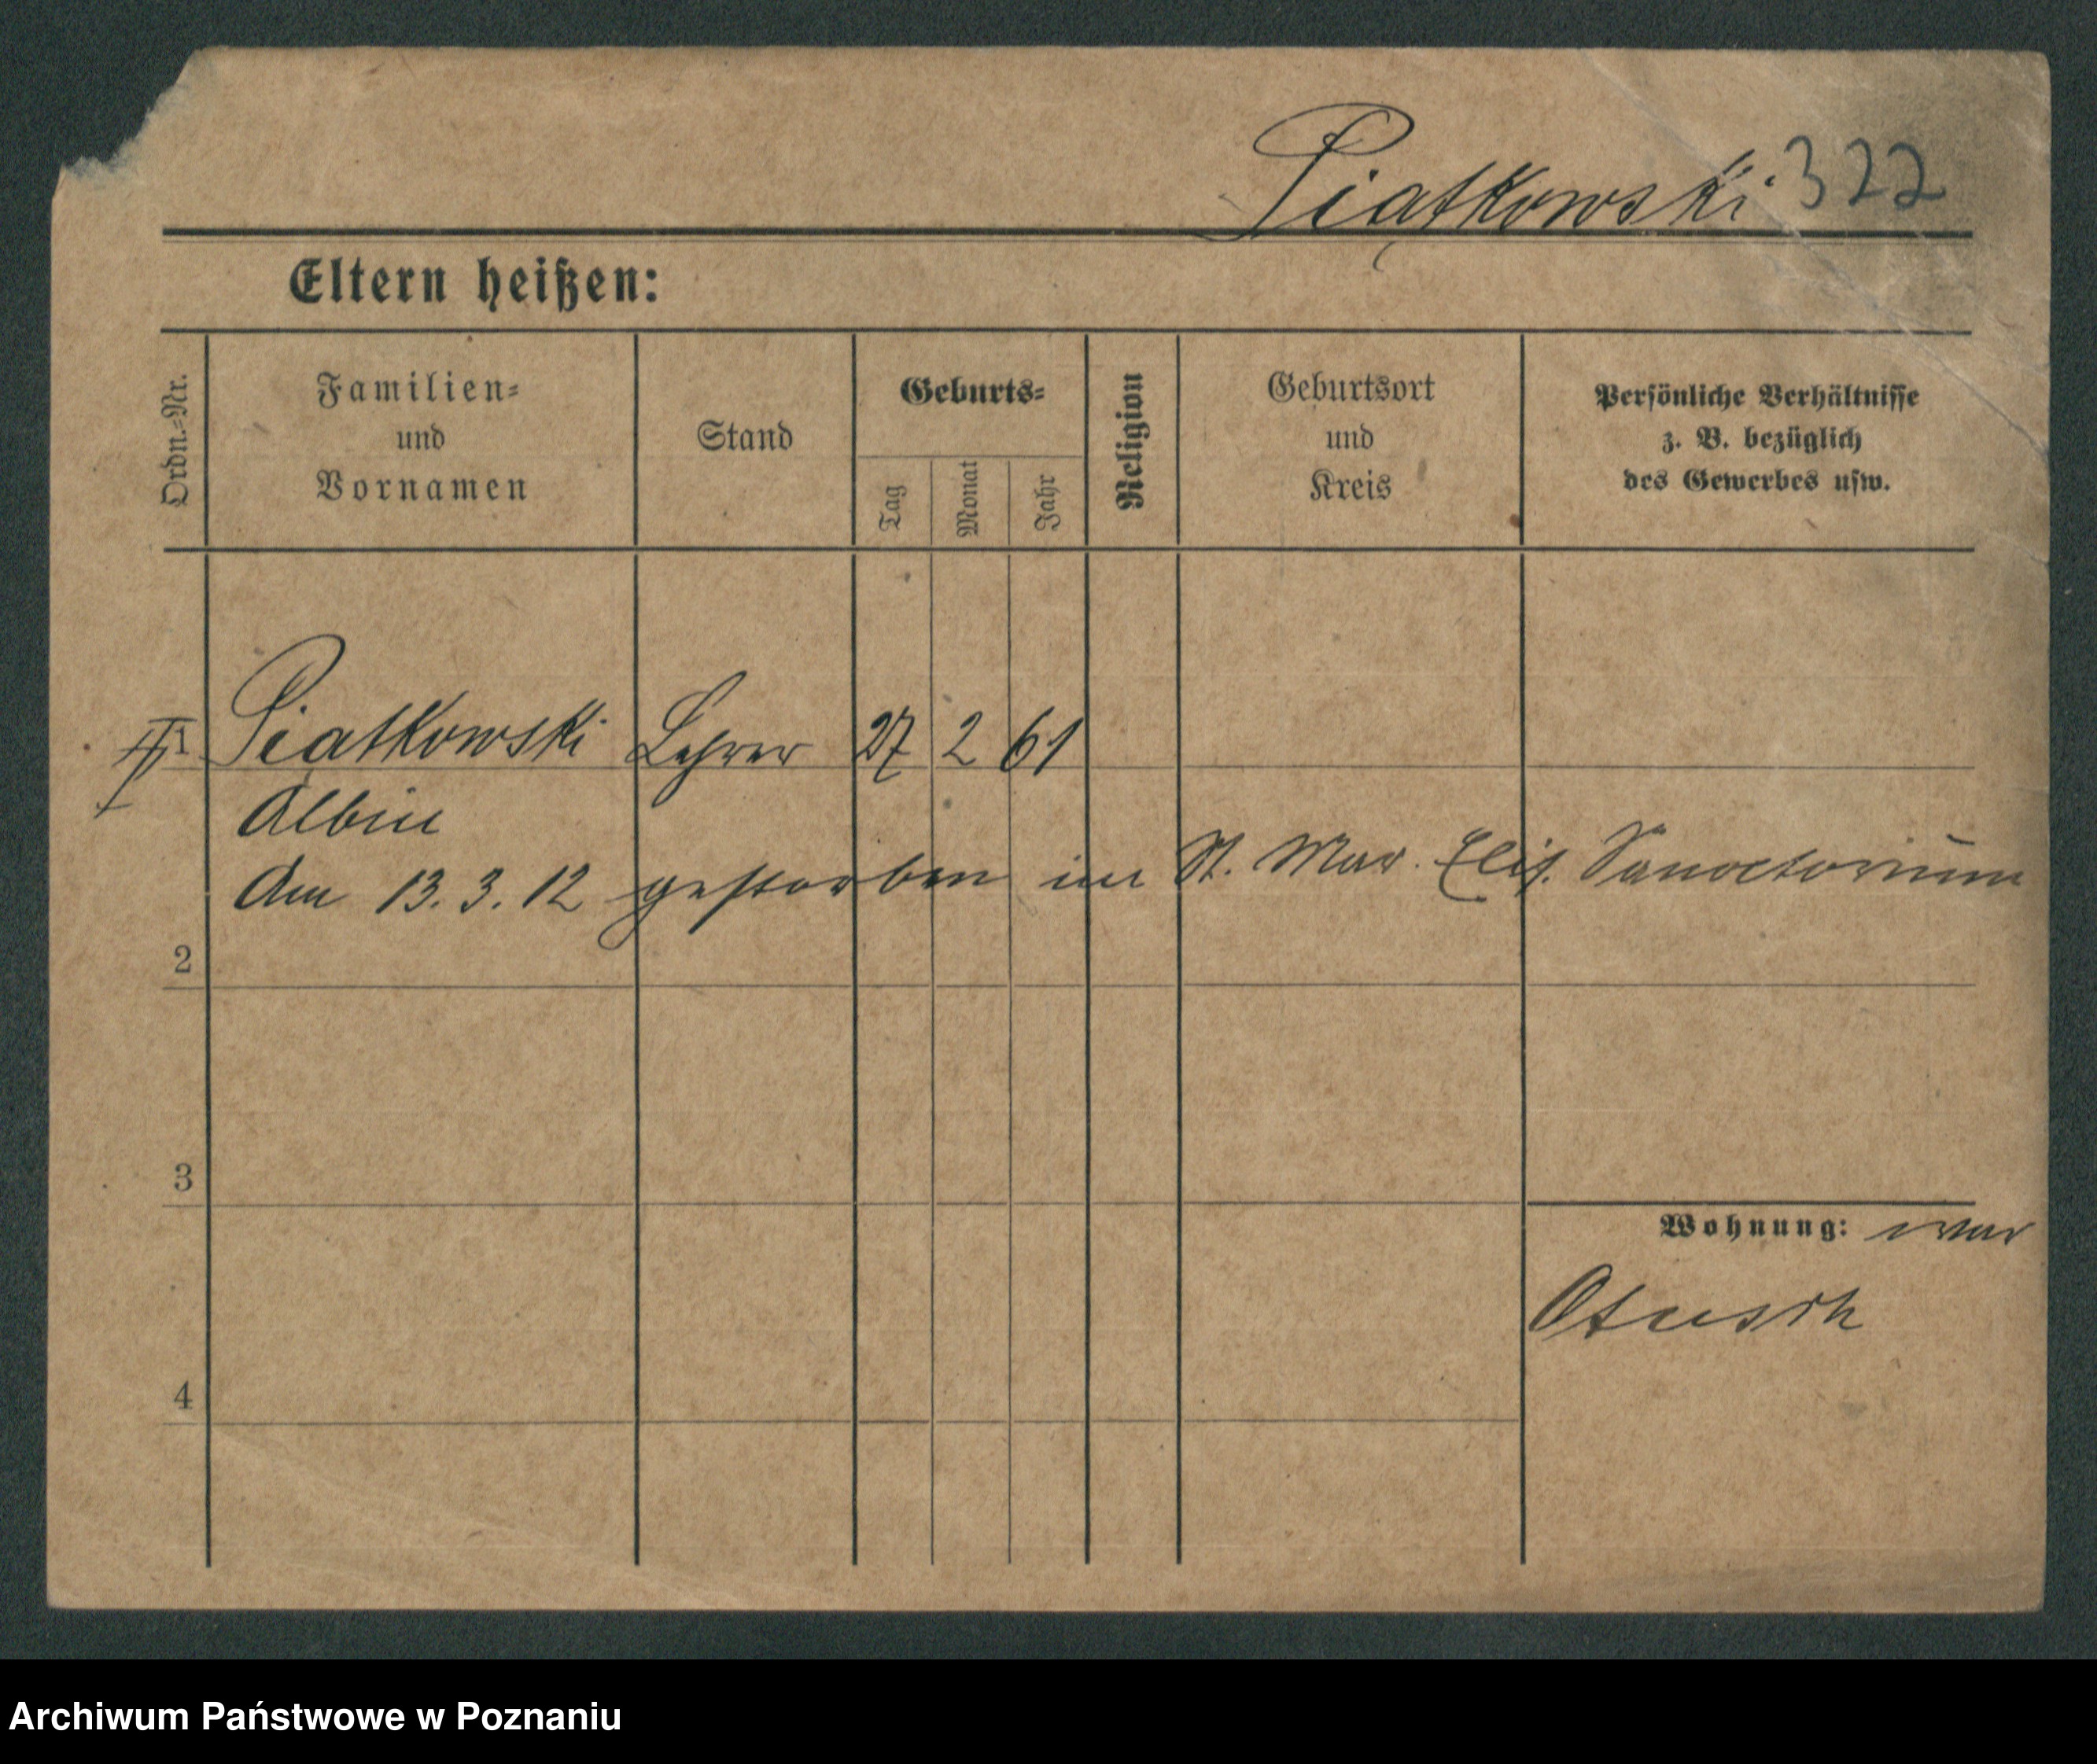 Piątkowski 322
Eltern heißen:
Ordn.=Nr.
Familien=
und
Vornamen
Stand
Geburts=
Tag
Monat
Jahr
Religion
Geburtsort
und
Kreis
Persönliche Verhältnisse
z. B. bezüglich
des Gewerbes usw.
1 Piątkowski Lehrer 27 2 61
Albin
Am 13. 3. 12 gestorben im St. Mar. Elis. Sanatorium
2
3
Wohnung: war
Otusch
4
Archiwum Państwowe w Poznaniu